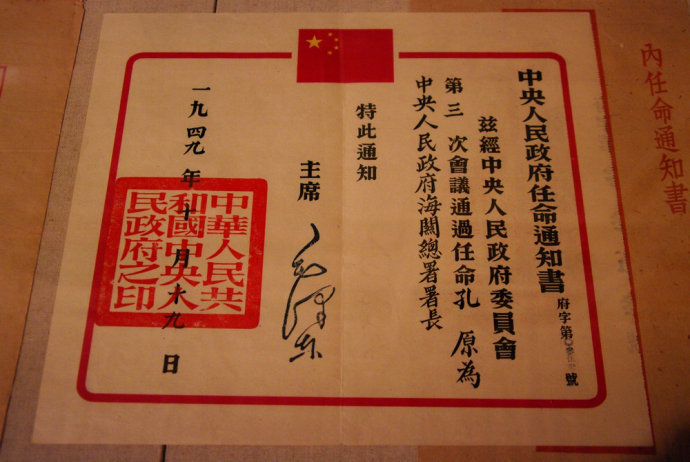 中央人民政府任命通知書
府字第號
茲經中央人民政府委員會
第三次會議通過任命孔原為
中央人民政府海關總署署長
特此通知
主席 毛澤東
一九四九年十月十九日
中華人民共
和國中央人
民政府之印
內任命通知書